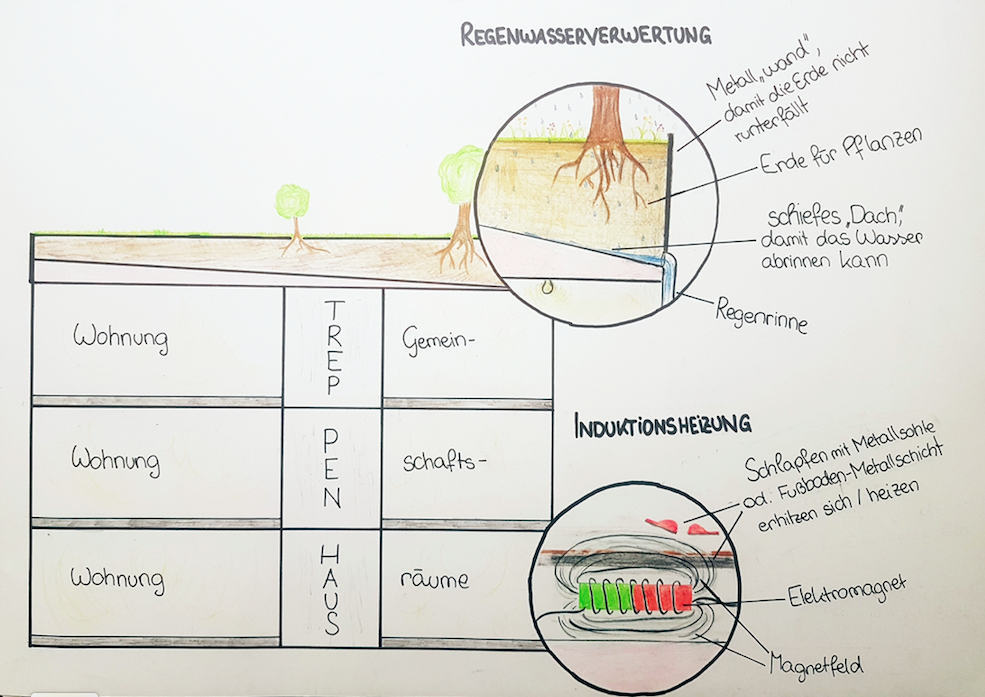 REGENWASSERVERWERTUNG
Metall„wand",
damit die Erde nicht
runterfällt
Erde für Pflanzen
schiefes „Dach",
damit das Wasser
abrinnen kann
Regenrinne
Wohnung
TREP
Gemein-
Wohnung
PEN
schafts-
Wohnung
HAUS
räume
INDUKTIONSHEIZUNG
Schlapfen mit Metallsohle
od. Fußboden-Metallschicht
erhitzen sich / heizen
Elektromagnet
Magnetfeld